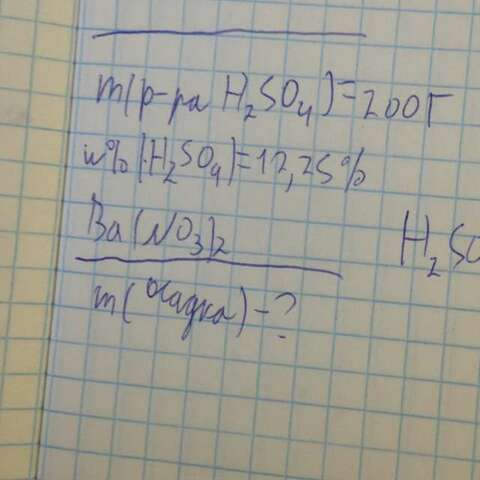 m(р-ра H₂SO₄)=200г
w%(H₂SO₄)=12,25%
Ba(NO₃)₂
H₂SO
m(осадка)-?